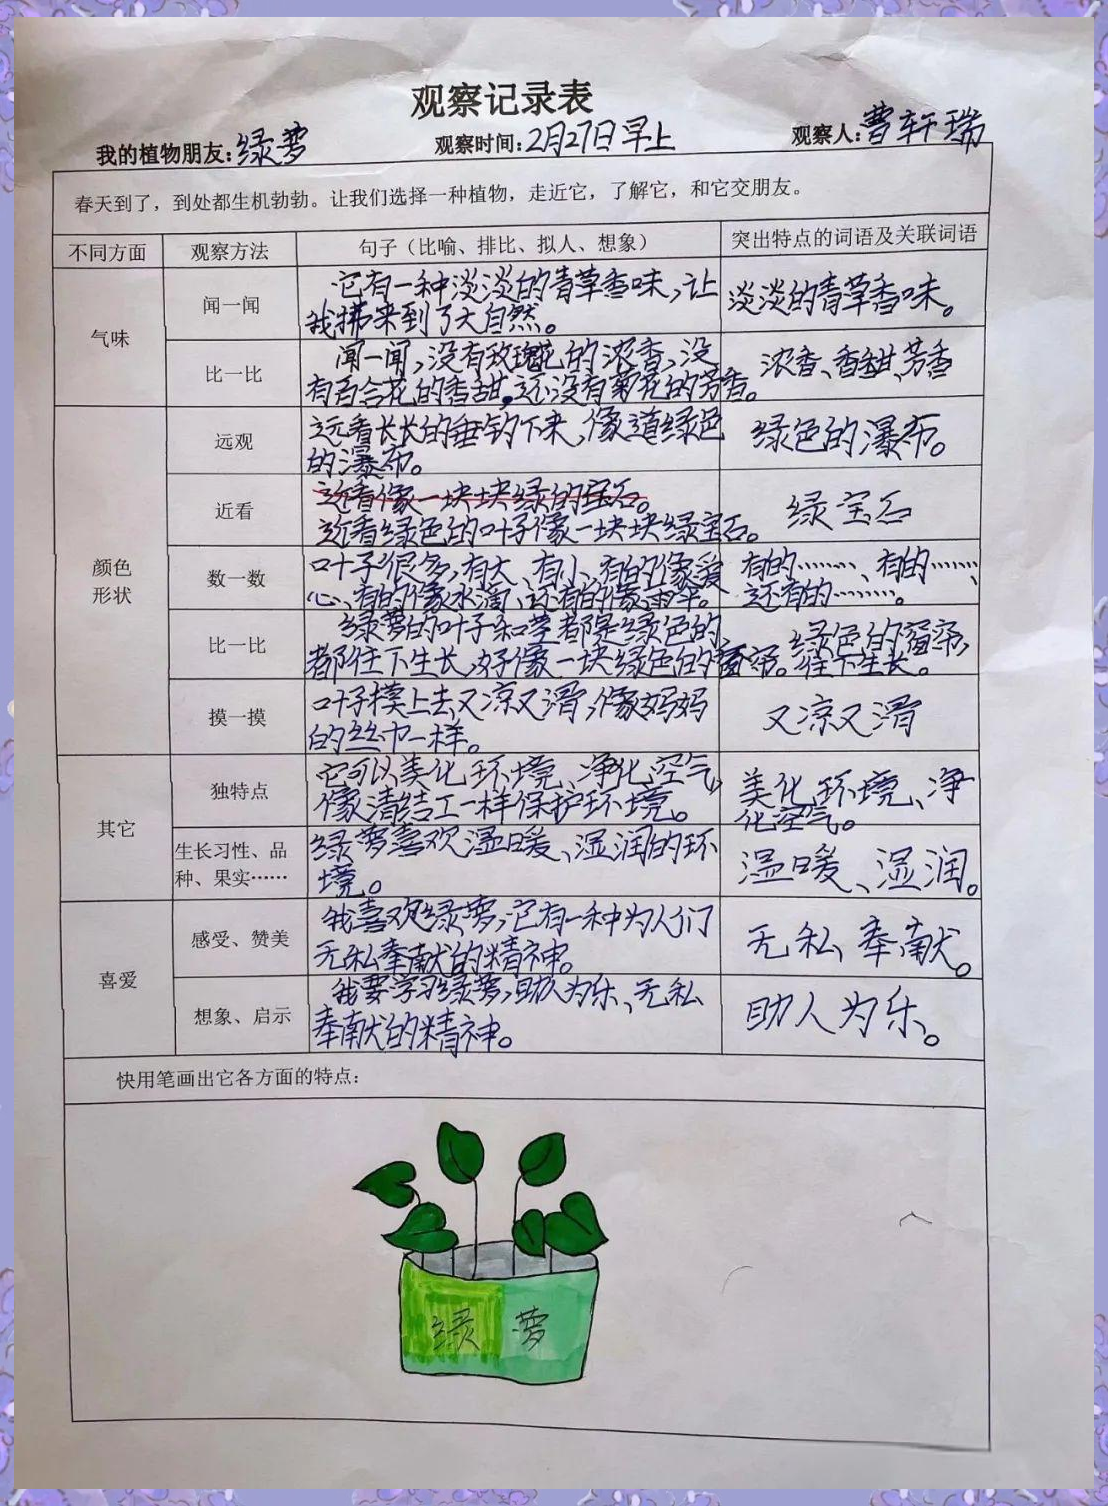 观察记录表
我的植物朋友:绿萝 观察时间:2月27日早上 观察人:曹轩瑞
春天到了，到处都生机勃勃。让我们选择一种植物，走近它，了解它，和它交朋友。
不同方面 观察方法 句子（比喻、排比、拟人、想象） 突出特点的词语及关联词语
气味
闻一闻
它有一种淡淡的青草香味,让
我拂来到了大自然。
淡淡的青草香味。
比一比
闻一闻,没有玫瑰花的浓香,没
有百合花的香甜,还没有菊花的芳香。
浓香、香甜、芳香
颜色
形状
远观
远看长长的垂钓下来,像道绿色
的瀑布。
绿色的瀑布。
近看
近看像一块块绿的宝石。
近看绿色的叶子像一块块绿宝石。
绿宝石
数一数
叶子很多,有大、有小,有的像爱
心、有的像水滴、还有的像雨伞。
有的……、有的……、
还有的……。
比一比
绿萝的叶子和茎都是绿色的,
都往下生长,好像一块绿色的窗帘。
绿色的窗帘,
往下生长。
摸一摸
叶子摸上去又凉又滑,像妈妈
的丝巾一样。
又凉又滑
其它
独特点
它可以美化环境、净化空气,
像清结工一样保护环境。
美化环境、净
化空气。
生长习性、品
种、果实……
绿萝喜欢温暖、湿润的环
境。
温暖、湿润。
喜爱
感受、赞美
我喜欢绿萝,它有一种为人们
无私奉献的精神。
无私奉献。
想象、启示
我要学习绿萝,助人为乐、无私
奉献的精神。
助人为乐。
快用笔画出它各方面的特点：
绿萝